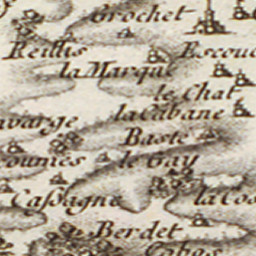 Crochet
Reillis
Escouc
la Marque
le Chat
la Cabane
varge
Baste
oumes
le Gay
Cassagne
la Cos
Berdet
Cabos